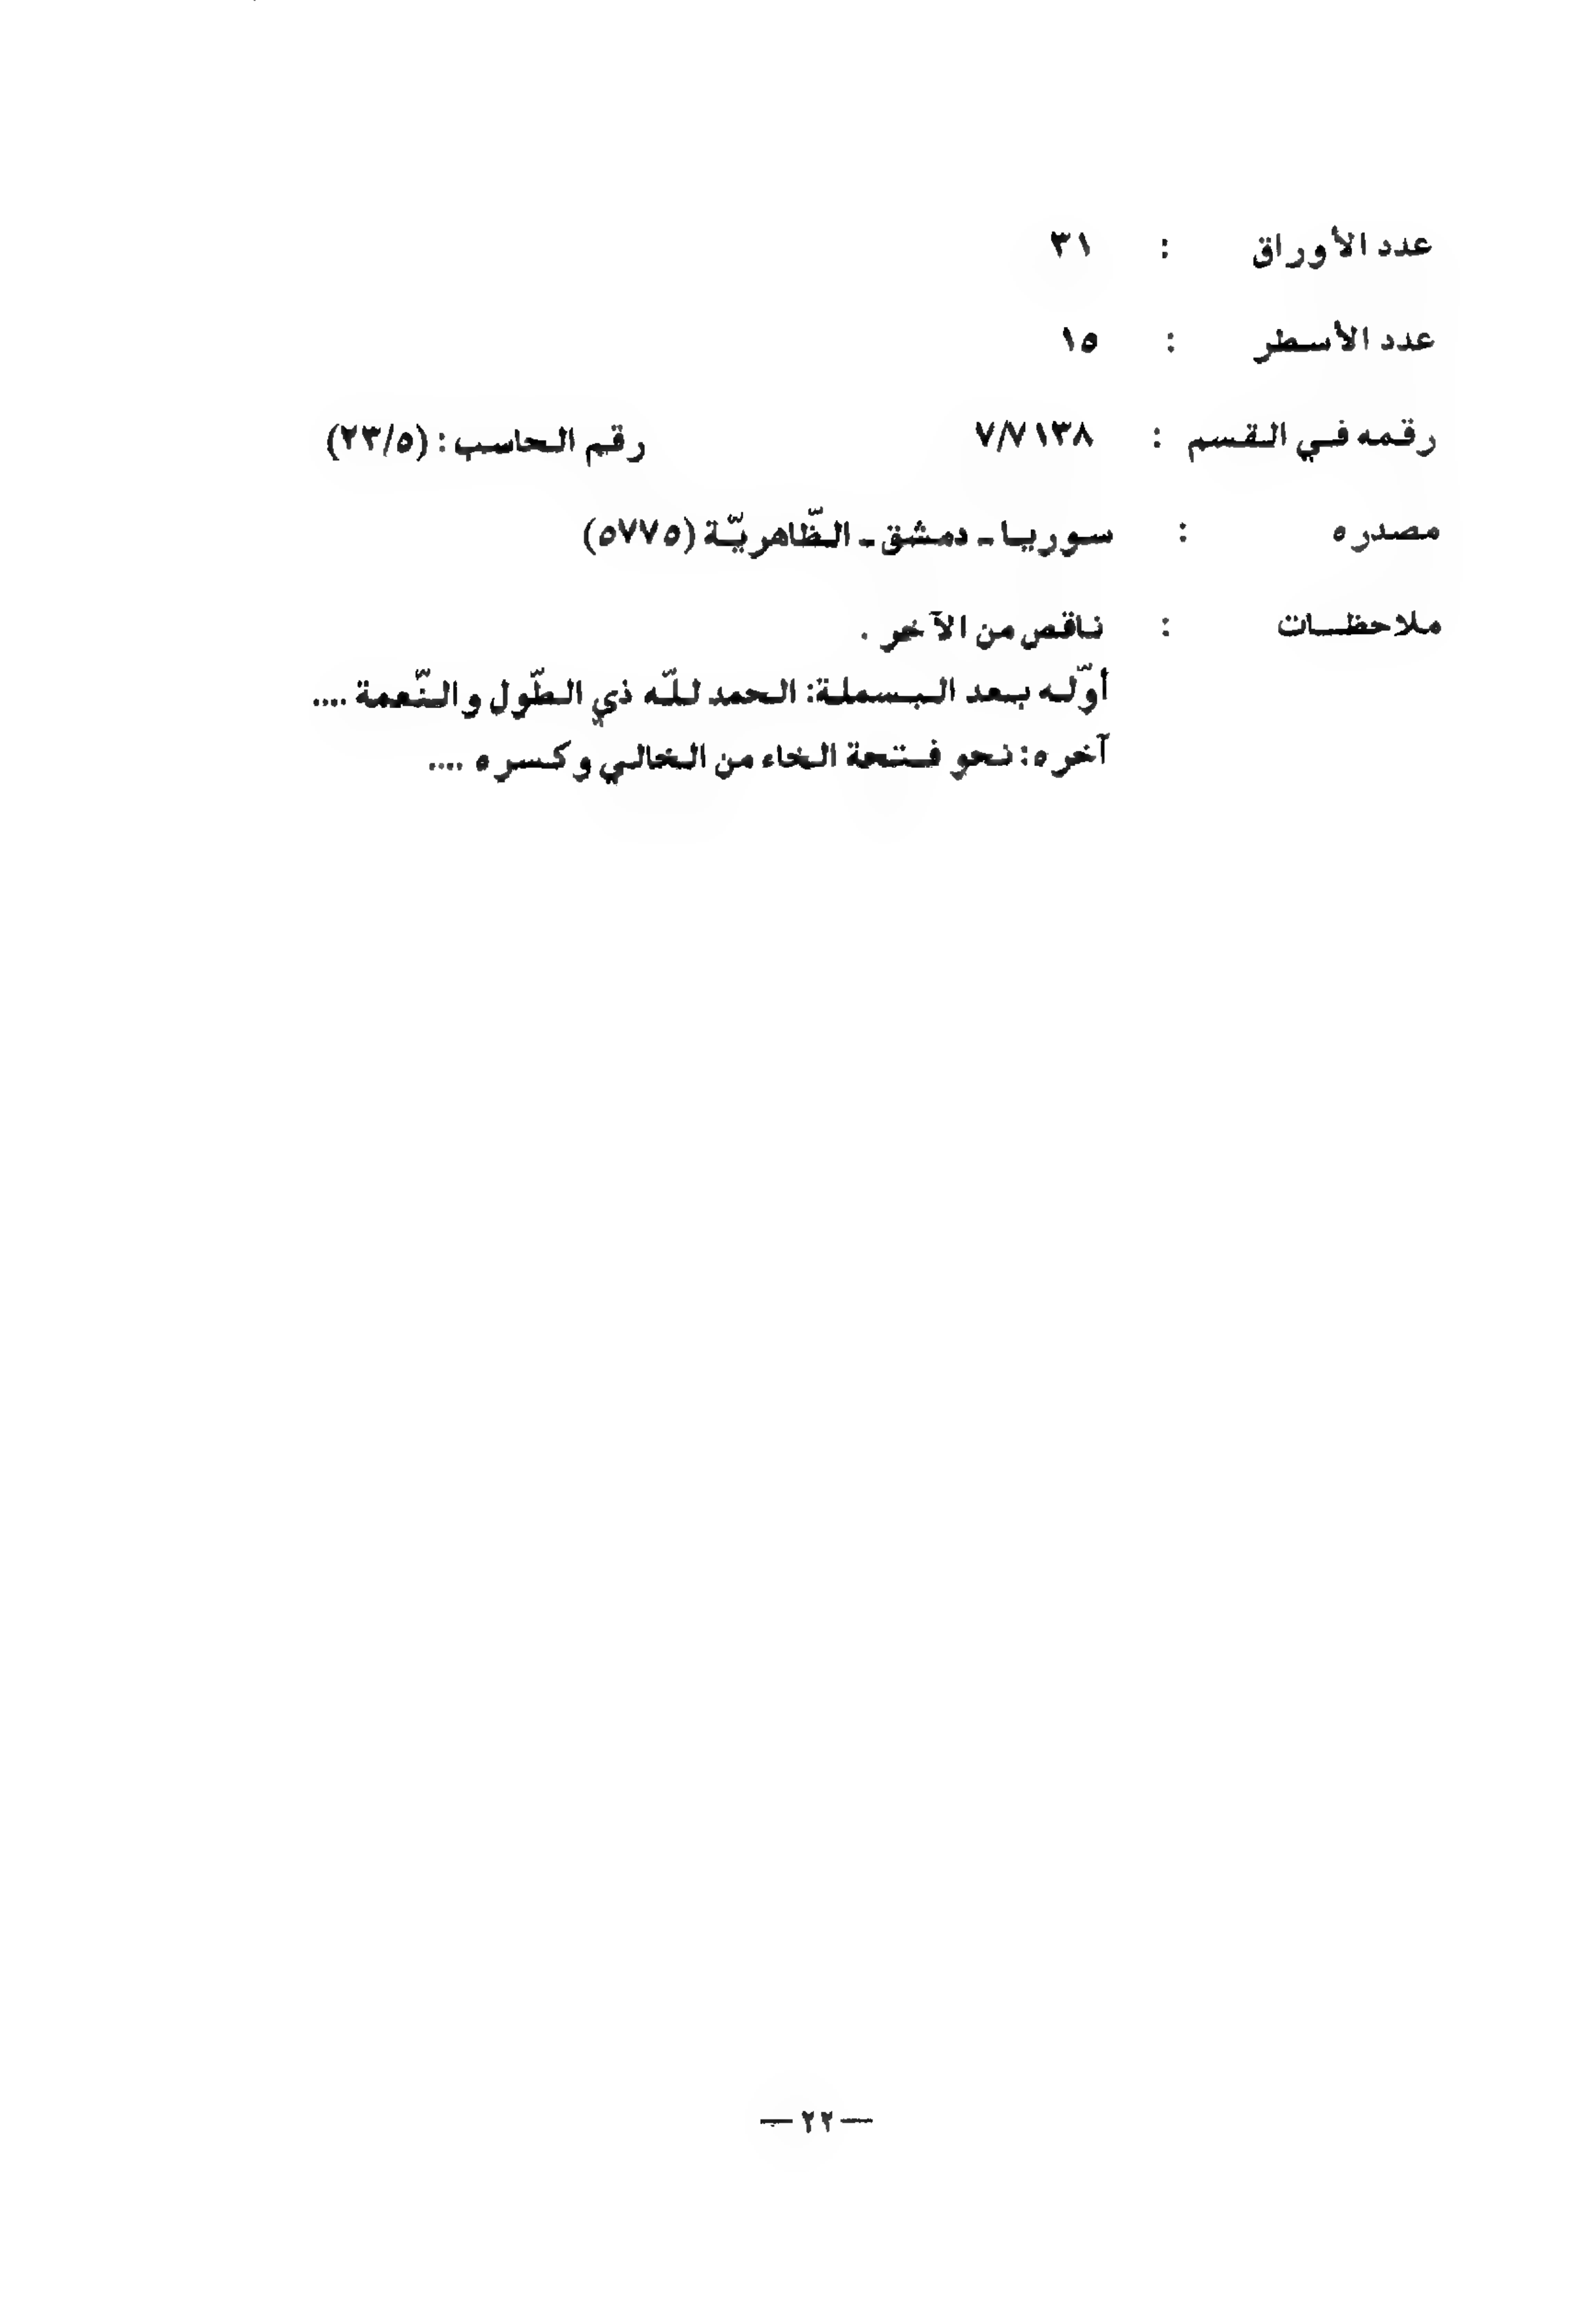 عدد الأوراق : ٣١
عدد الأسطر : ١٥
رقمه في القسم : ٧/٧١٣٨ رقم الحاسب : (٢٣/٥)
مصدره : سوريا ـ دمشق ـ الظّاهريّة (٥٧٧٥)
ملاحظات : ناقص من الآخر .
أوّله بعد البسملة: الحمد للّه ذي الطّول والنّعمة ....
آخره: نحو فتحة الخاء من الخالي وكسره ....
— ٢٢ —